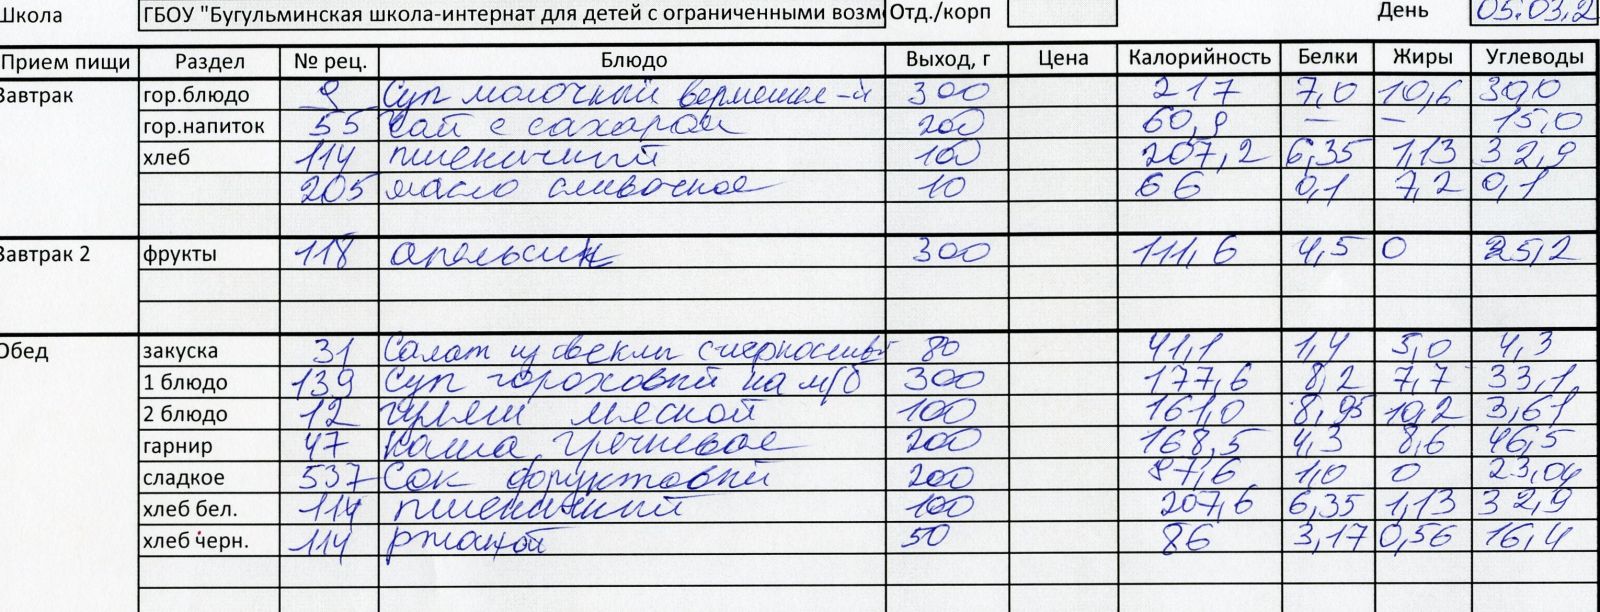 Школа ГБОУ "Бугульминская школа-интернат для детей с ограниченными возм Отд./корп День 05.03.2
Прием пищи Раздел № рец. Блюдо Выход, г Цена Калорийность Белки Жиры Углеводы
Завтрак гор.блюдо 9 Суп молочный вермешел-й 300 217 7,0 10,6 30,0
гор.напиток 55 Чай с сахаром 200 60,9 — — 15,0
хлеб 114 пшеничный 100 207,2 6,35 1,13 32,9
205 масло сливочное 10 66 0,1 7,2 0,1
Завтрак 2 фрукты 118 апельсин 300 111,6 4,5 0 25,2
Обед закуска 31 Салат из свеклы с чернослив 80 41,1 1,4 5,0 4,3
1 блюдо 139 Суп гороховый на м/б 300 177,6 8,2 7,7 33,1
2 блюдо 12 гуляш мясной 100 161,0 8,95 10,2 3,61
гарнир 47 каша гречневая 200 168,5 4,3 8,6 46,5
сладкое 537 Сок фруктовый 200 97,6 1,0 0 23,04
хлеб бел. 114 пшеничный 100 207,6 6,35 1,13 32,9
хлеб черн. 114 ржаной 50 86 3,17 0,56 16,4